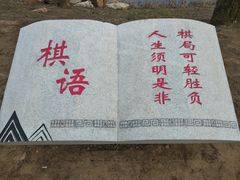 棋语
棋局可轻胜负
人生须明是非